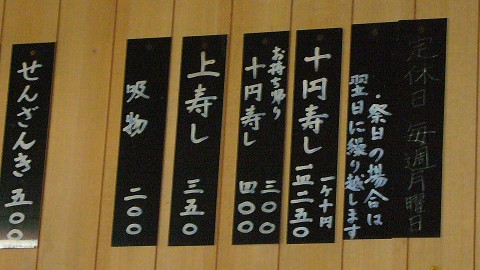 定休日 毎週月曜日
・祭日の場合は
翌日に繰り越します
十円寿し 一ケ十円
一皿二五〇
お持ち帰り 三〇〇
十円寿し 四〇〇
上寿し 三五〇
吸物 二〇〇
せんざんき 五〇〇